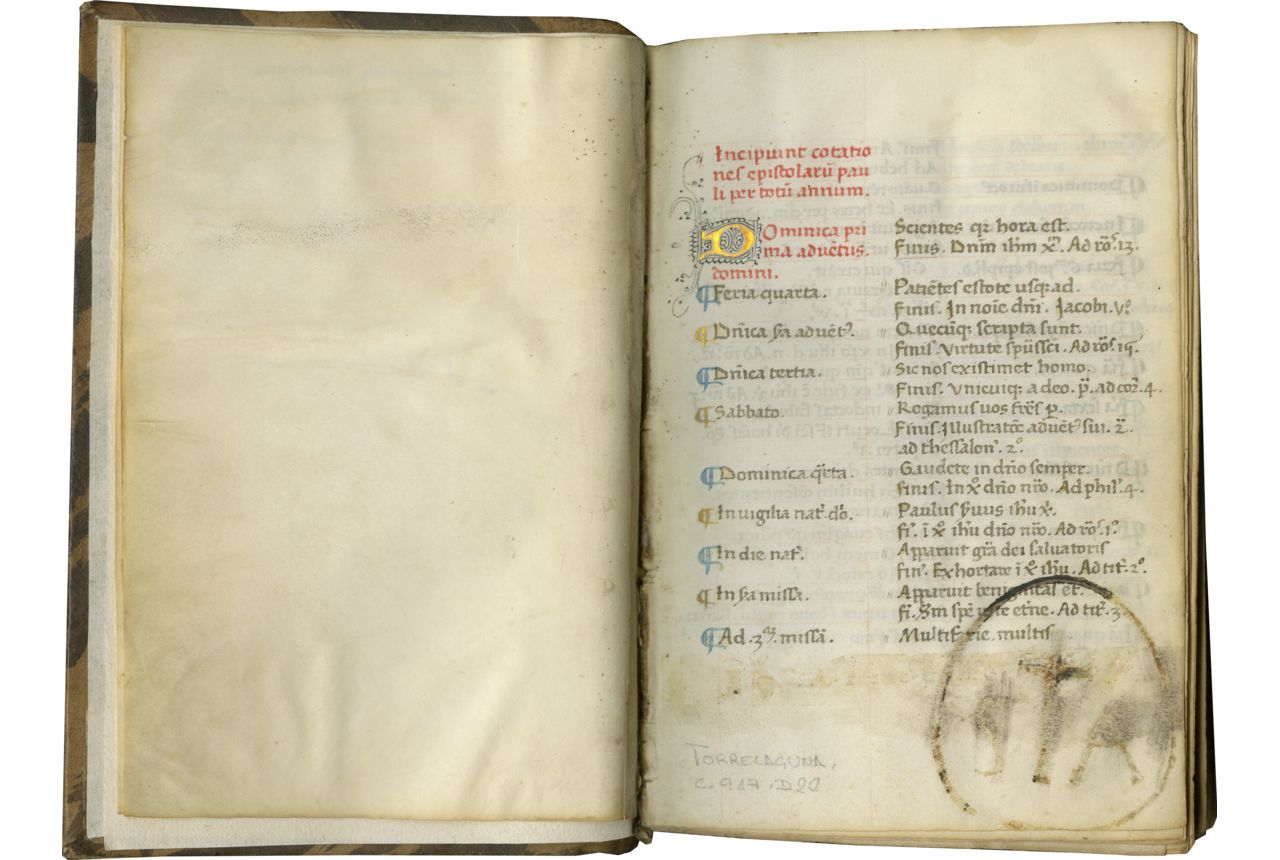 Incipiunt cotatio
nes epistolarū pau
li per totū annum.
Dominica pri
ma advētus.
domini.
Scientes qꝛ hora est.
Finis. Dnm ihm xᵖ. Ad roˢ. 13.
¶ Feria quarta.
〃 Patiētes estote usqꝫ ad.
Finis. In noīe dnī. Jacobi. vº.
¶ Dnīca ẜa advēt
〃 Quecūqꝫ scripta sunt.
finis. Virtute spūssci. Ad roˢ. 15.
¶ Dnīca tertia.
〃 Sic nos existimet homo.
Finis. Vnicuiqꝫ a deo. pª. ad coꝝ. 4.
¶ Sabbato.
〃 Rogamus uos frēs p.
Finis. Illustratōe advēt sui. 2ª.
ad thessalon. 2º.
¶ Dominica qrta.
〃 Gaudete in dño semper.
finis. In xº dño nrō. Ad phil. 4.
¶ In vigilia nat. do.
〃 Paulus ẜuus ihu xⁱ.
fi. ī xº ihu dño nrō. Ad roˢ. 1º.
¶ In die nat.
〃 Apparuit gr̄a dei salvatoris
fin. Exhortare ī xº ihu. Ad tit. 2º.
¶ In ẜa missa.
〃 Apparuit benignitas et.
fi. Sm spē eterne. Ad tit. 3
¶ Ad. 3ª. missā.
〃 Multifarie multis
TORRELAGUNA,
ITA